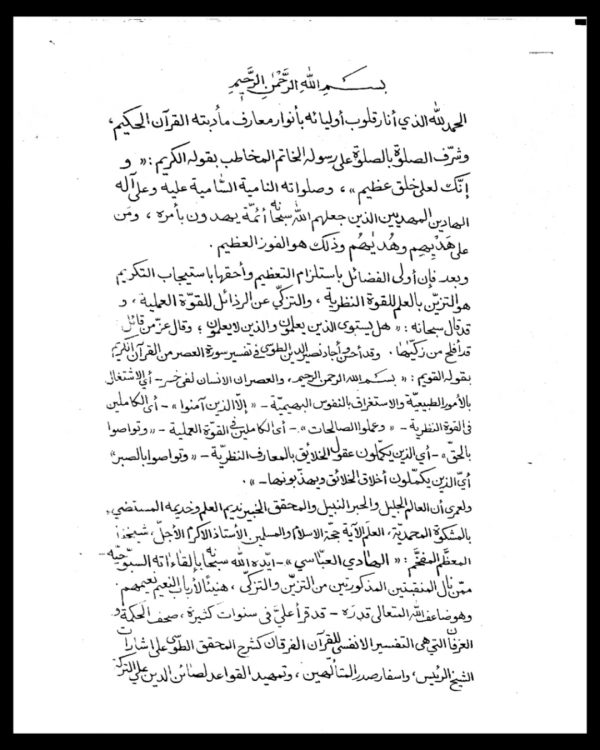 بسم الله الرَّحْمٰنِ الرَّحيمِ
الحمد لله الذي أنار قلوب أوليائه بأنوار معارف مأدبته القرآن الحكيم،
وشرّف الصلوة بالصلوة على رسوله الخاتم المخاطب بقوله الكريم: « و
إنّك لعلى خلق عظيم »، وصلواته النامية السّامية عليه وعلى آله
الهادين المهديين الذين جعلهم الله سبحانه أئمّة يهدون بأمره، ومَن
على هَدْيِهِم وهُدٰيهُم وذلك هو الفوز العظيم.
وبعد فإن أولى الفضائل باستلزام التعظيم وأحقها باستيجاب التكريم
هو التزيّن بالعلم للقوة النظرية، والتزكّي عن الرذائل للقوّة العملية، و
قد قال سبحانه: « هل يستوى الذين يعلمون والذين لا يعلمون ؛ وقال عزّ من قائل
قد أفلح من زكّيها. وقد أحسن وأجاد نصير الدين الطوسى فى تفسير سورة العصر من القرآن الكريم
بقوله القويم: « بسم الله الرحمن الرحيم، والعصر ان الانسان لفى خسر - أي الاشتغال
بالأمور الطبيعيّة والاستغراق بالنفوس البهيميّة - « إلاّ الذين آمنوا » - أى الكاملين
فى القوة النظرية - « وعملوا الصالحات » - أى الكاملين فى القوّة العملية - « وتواصوا
بالحقّ » - أي الذين يكمّلون عقول الخلائق بالمعارف النظريّة - « وتواصوا بالصبر »
أي الذين يكمّلون أخلاق الخلائق ويهذّبونها - ».
ولعمرى أن العالم الجليل والحبر النبيل والمحقق الخبير نديم العلم وخديمه المستضيء
بالمشكوة المحمديّة، العلم الآية حجّة الاسلام والمسلمين الأستاذ الاكرم الأجلّ، شيخنا
المعظّم المفخّم: « الهادي العبّاسي » - أيّده الله سبحانه بإلقاءاته السبّوحيّة -
ممّن نال المنقبتين المذكورتين من التزيّن والتزكّى، هنيئًا لأرباب النعيم نعيمهم.
وهو ضاعف الله المتعالى قدره - قد قرأ عليّ فى سنوات كثيرة، صحف الحكمة و
العرفان التي هى التفسير الانفسى للقرآن الفرقان كشرح المحقق الطوسى على اشارات
الشيخ الرئيس، واسفار صدر المتألّهين، وتمهيد القواعد لصائن الدين علي التركة